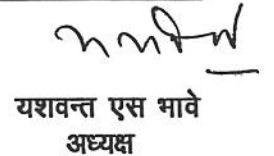 यशवन्त एस भावे
अध्यक्ष